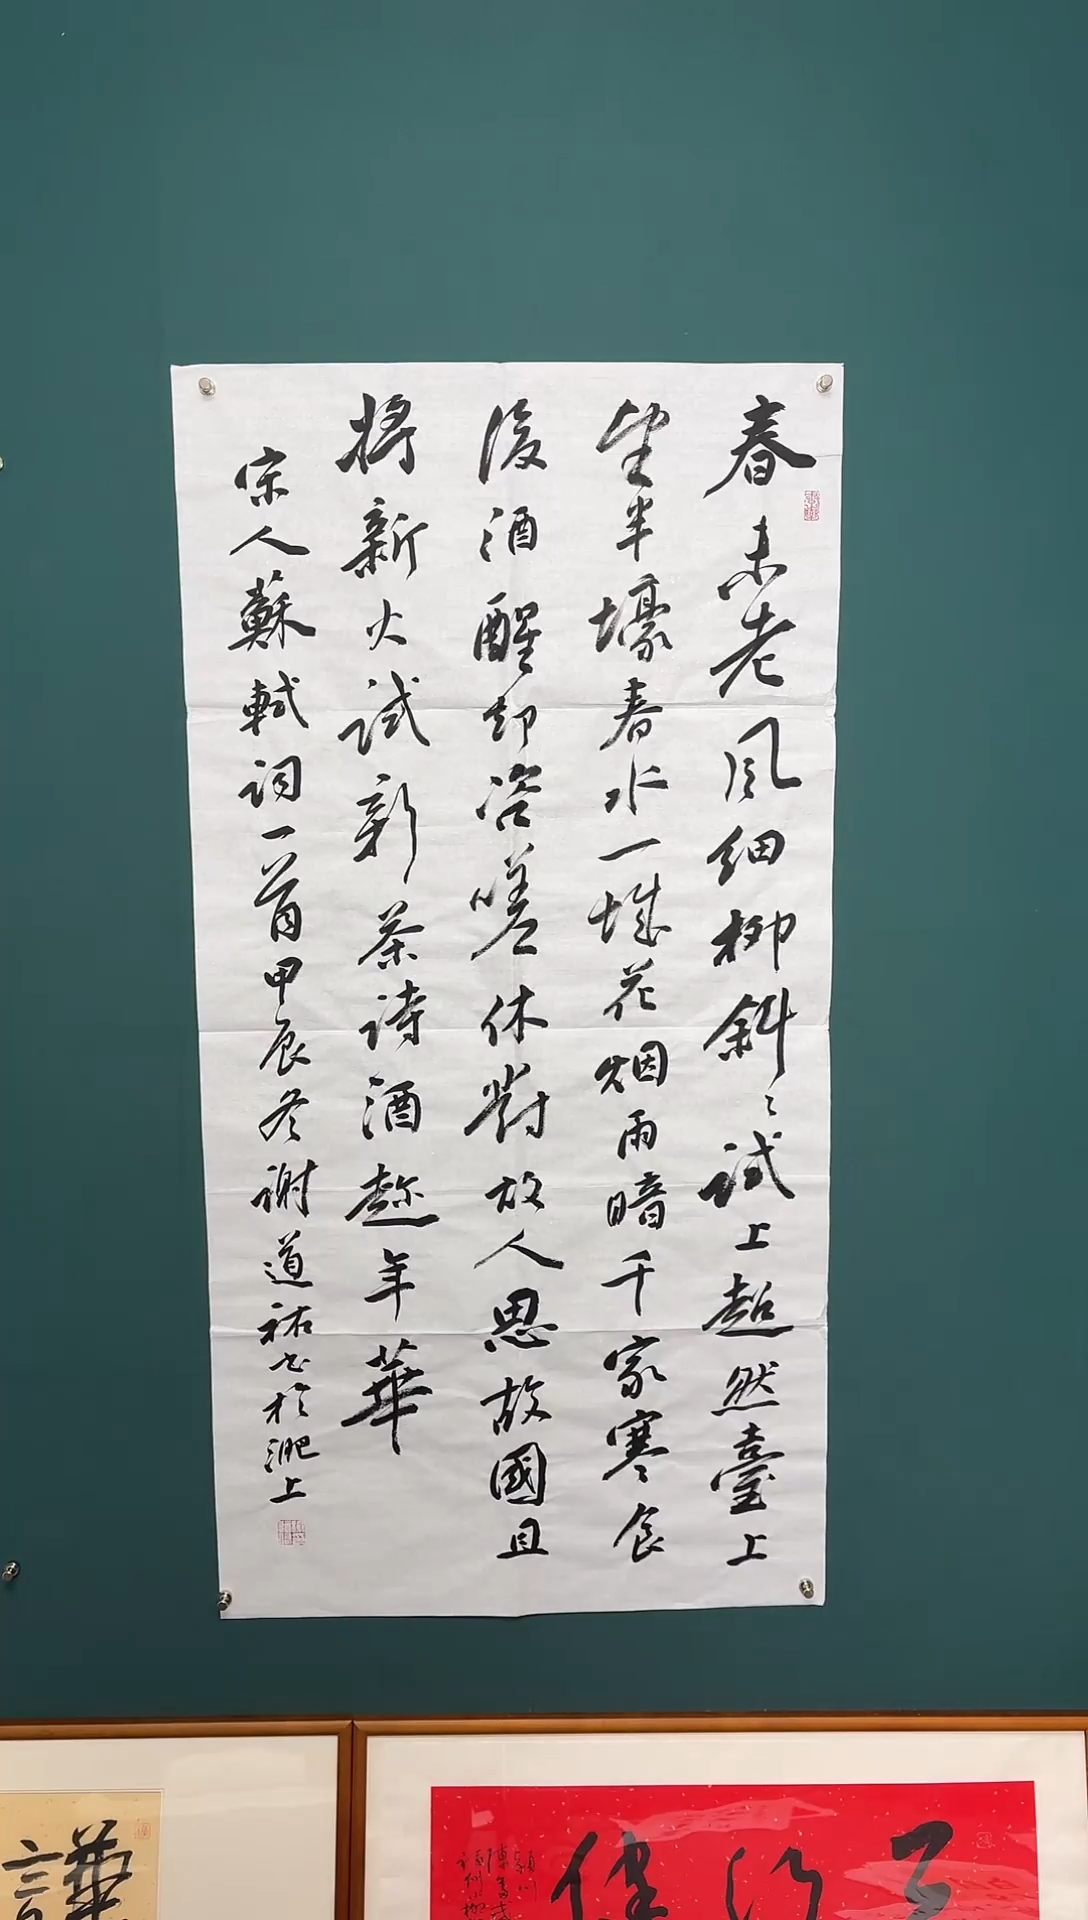 春未老风细柳斜〻试上超然臺上
望半壕春水一城花烟雨暗千家寒食
後酒醒却咨嗟休對故人思故國且
将新火试新茶诗酒趁年華
宋人蘇軾词一首甲辰冬谢道祐书於淝上